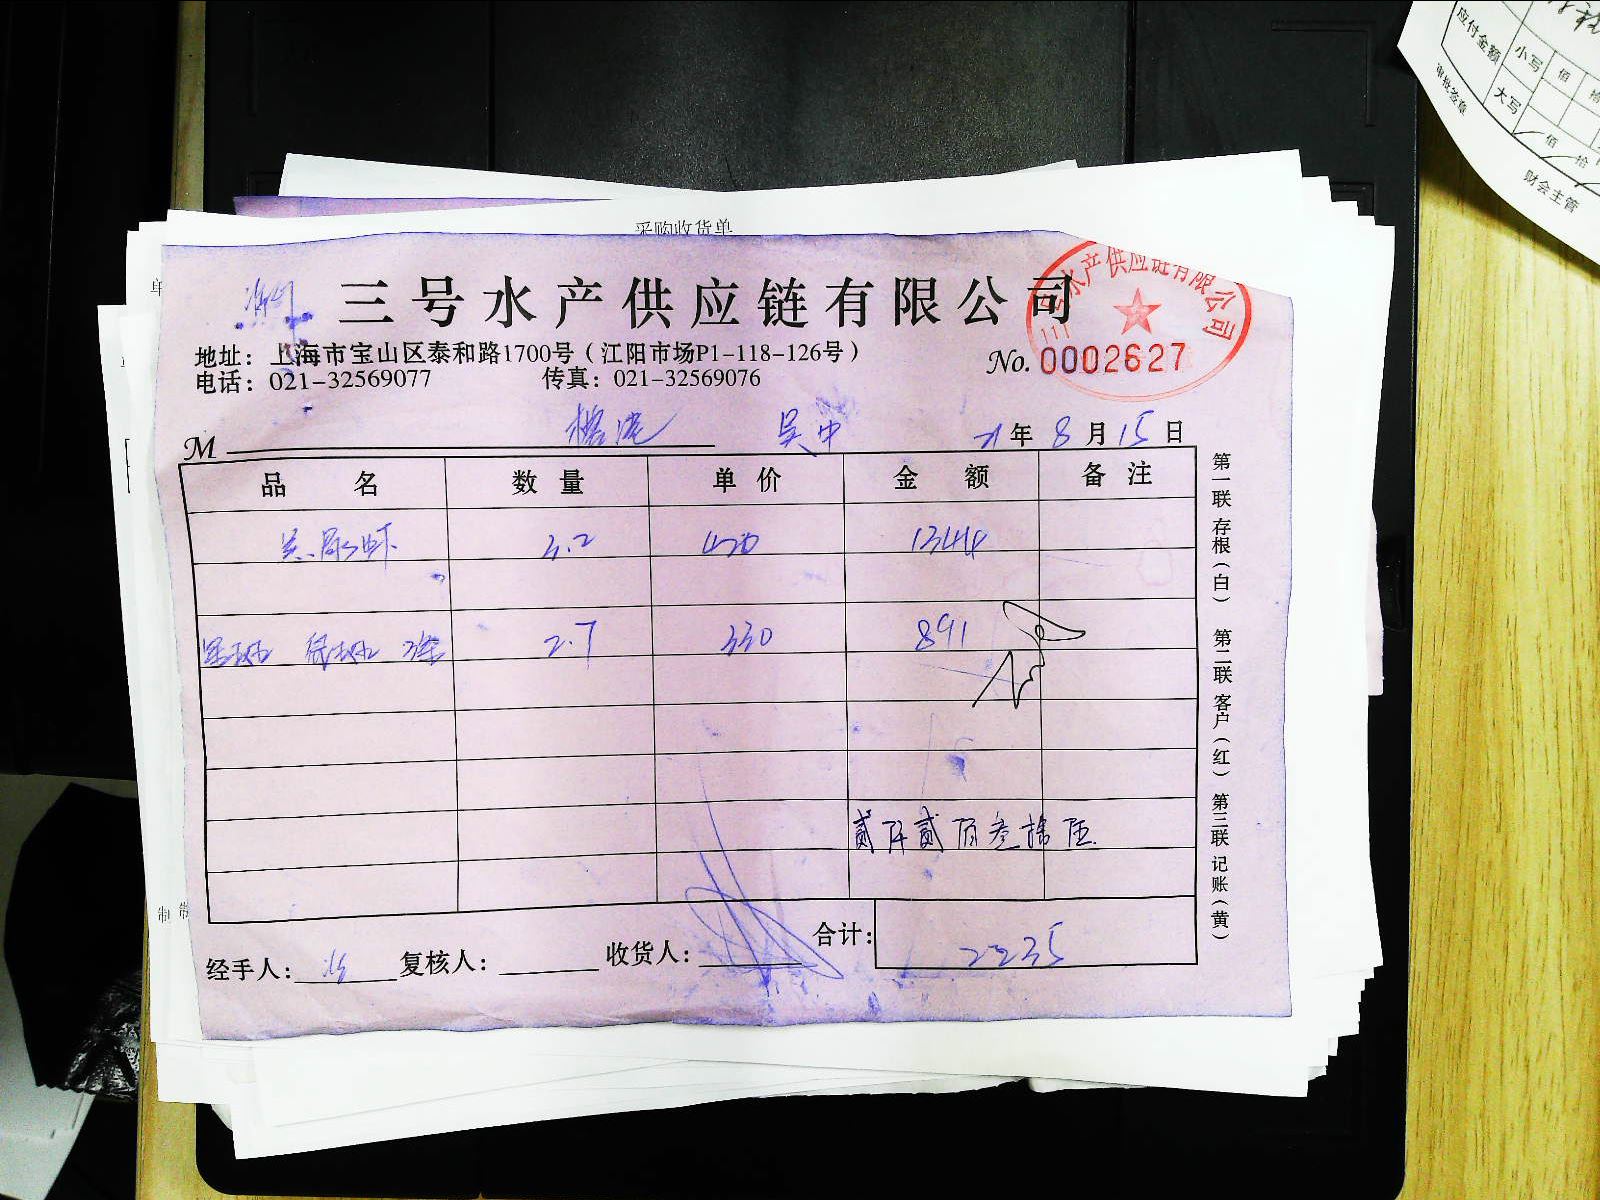 应付金额
小写
佰
大写
佰 拾
审批签章
财会主管
采购收货单
三号水产供应链有限公司
水产供应链有限公司
地址：上海市宝山区泰和路1700号（江阳市场P1-118-126号）
No. 0002627
电话：021-32569077 传真：021-32569076
M 吴中 21年8月15日
品名 数量 单价 金额 备注
3.2 420 1344
2.7 330 891
贰仟贰佰叁拾伍
合计： 2235
经手人： 复核人： 收货人：
第一联 存根（白） 第二联 客户（红） 第三联 记账（黄）
制
制